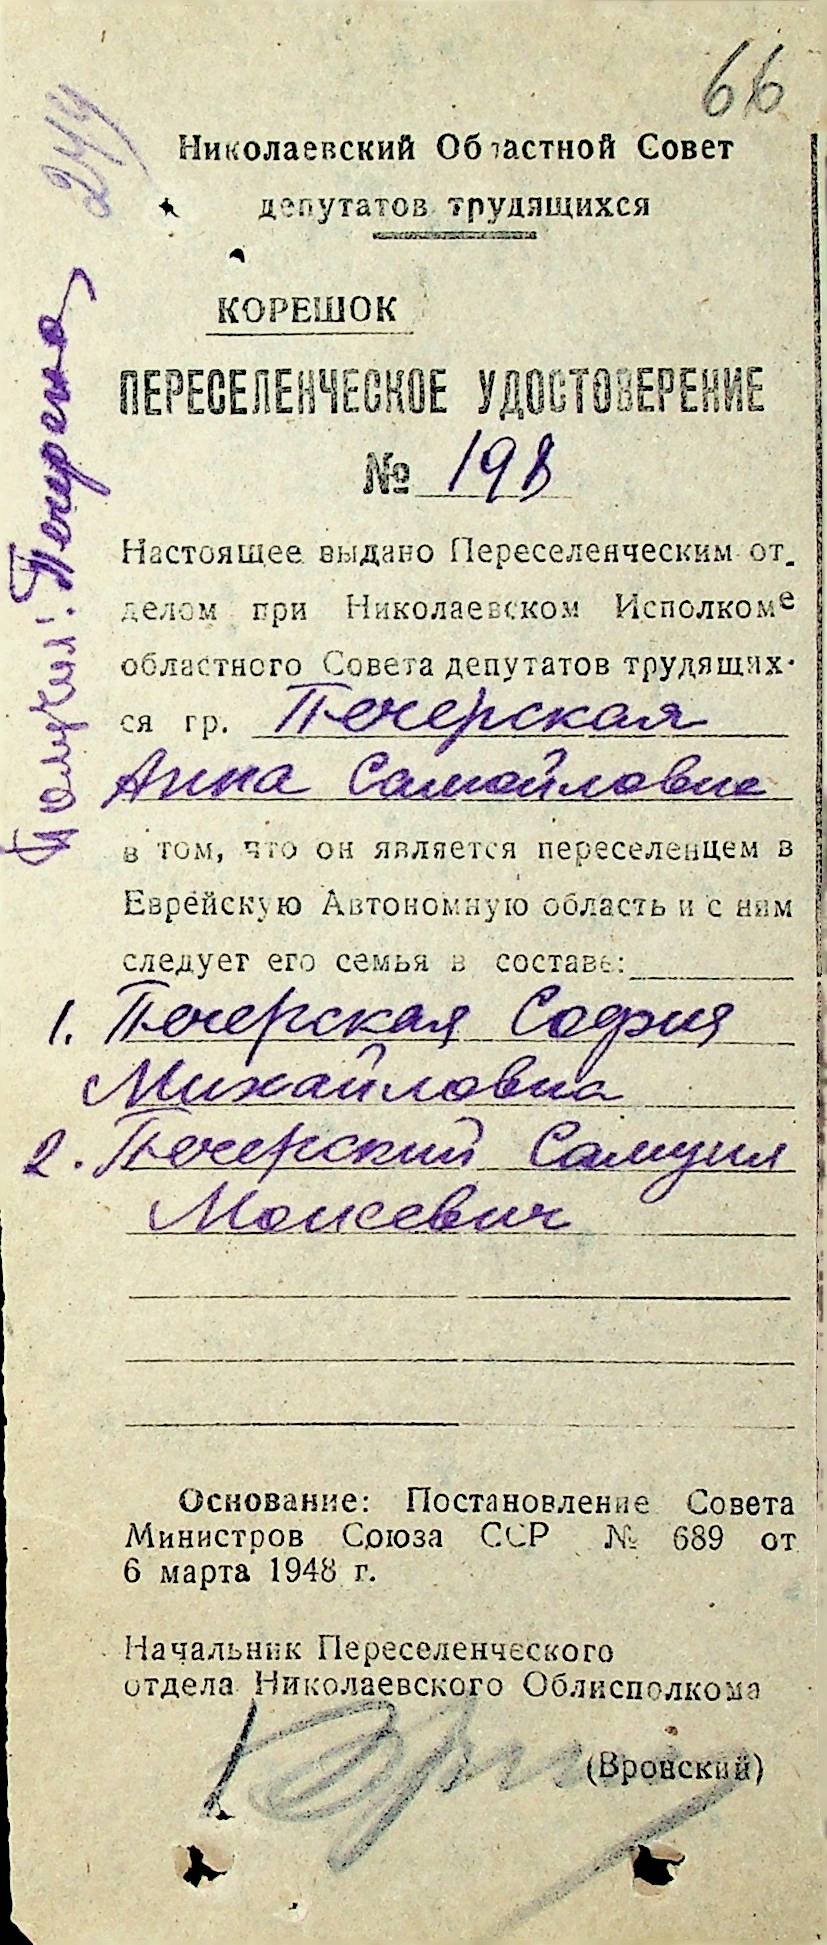 66
244
Николаевский Областной Совет
депутатов трудящихся
КОРЕШОК
ПЕРЕСЕЛЕНЧЕСКОЕ УДОСТОВЕРЕНИЕ
№ 198
Настоящее выдано Переселенческим от-
делом при Николаевском Исполкоме
областного Совета депутатов трудящих-
ся гр. Печерская
Анна Самойловна
в том, что он является переселенцем в
Еврейскую Автономную область и с ним
следует его семья в составе:
1. Печерская София
Михайловна
2. Печерский Самуил
Моисевич
Основание: Постановление Совета
Министров Союза ССР № 689 от
6 марта 1948 г.
Начальник Переселенческого
отдела Николаевского Облисполкома
(Вронский)